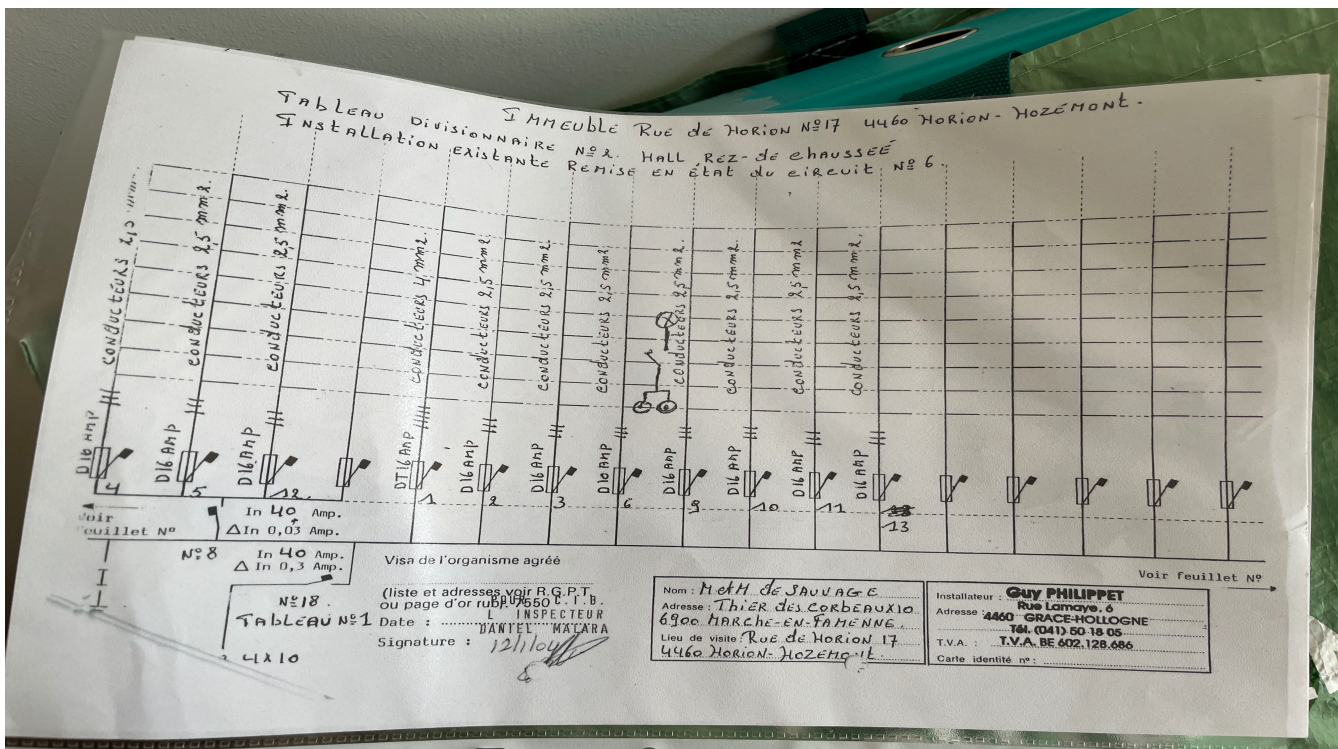 TABLEAU DIVISIONNAIRE Nº 2. IMMEUBLE RUE de HORION Nº17 4460 HORION-HOZÉMONT.
HALL REZ-de chaussée
INSTALLATION EXISTANTE REMISE EN ÉTAT du circuit Nº 6.
CONDUCTEURS 2,5
CONDUCTEURS 2,5 mm2.
CONDUCTEURS 2,5 mm2.
CONDUCTEURS 4 mm2.
CONDUCTEURS 2,5 mm2
CONDUCTEURS 2,5 mm2.
CONDUCTEURS 2,5 mm2.
CONDUCTEURS 2,5 mm2.
CONDUCTEURS 2,5 mm2.
CONDUCTEURS 2,5 mm2.
CONDUCTEURS 2,5 mm2.
D16 AMP
D16 AMP
D16 AMP
DT16 AMP
D16 AMP
D16 AMP
D10 AMP
D16 AMP
D16 AMP
D16 AMP
D16 AMP
4 5 12. 1 2 3 6 9 10 11
13
Voir
feuillet Nº
In 40 Amp.
△In 0,03 Amp.
Nº8
In 40 Amp.
△ In 0,3 Amp.
Nº18.
TABLEAU Nº1
4x10
Visa de l'organisme agréé
(liste et adresses voir R.G.P.T.
ou page d'or rubr. 7550
POUR C.T.B.
L'INSPECTEUR
Date :
DANIEL MALARA
Signature : 12/1/04
Voir feuillet Nº
Nom : M et M de SAUVAGE
Adresse : THIER des CORBEAUX 10
6900 MARCHE-EN-FAMENNE.
Lieu de visite : RUE de HORION 17
4460 HORION-HOZEMONT.
Installateur : Guy PHILIPPET
Adresse : Rue Lamaye. 6
4460 GRACE-HOLLOGNE
Tél. (041) 50 18 05
T.V.A. : T.V.A. BE 602.128.686
Carte identité nº :